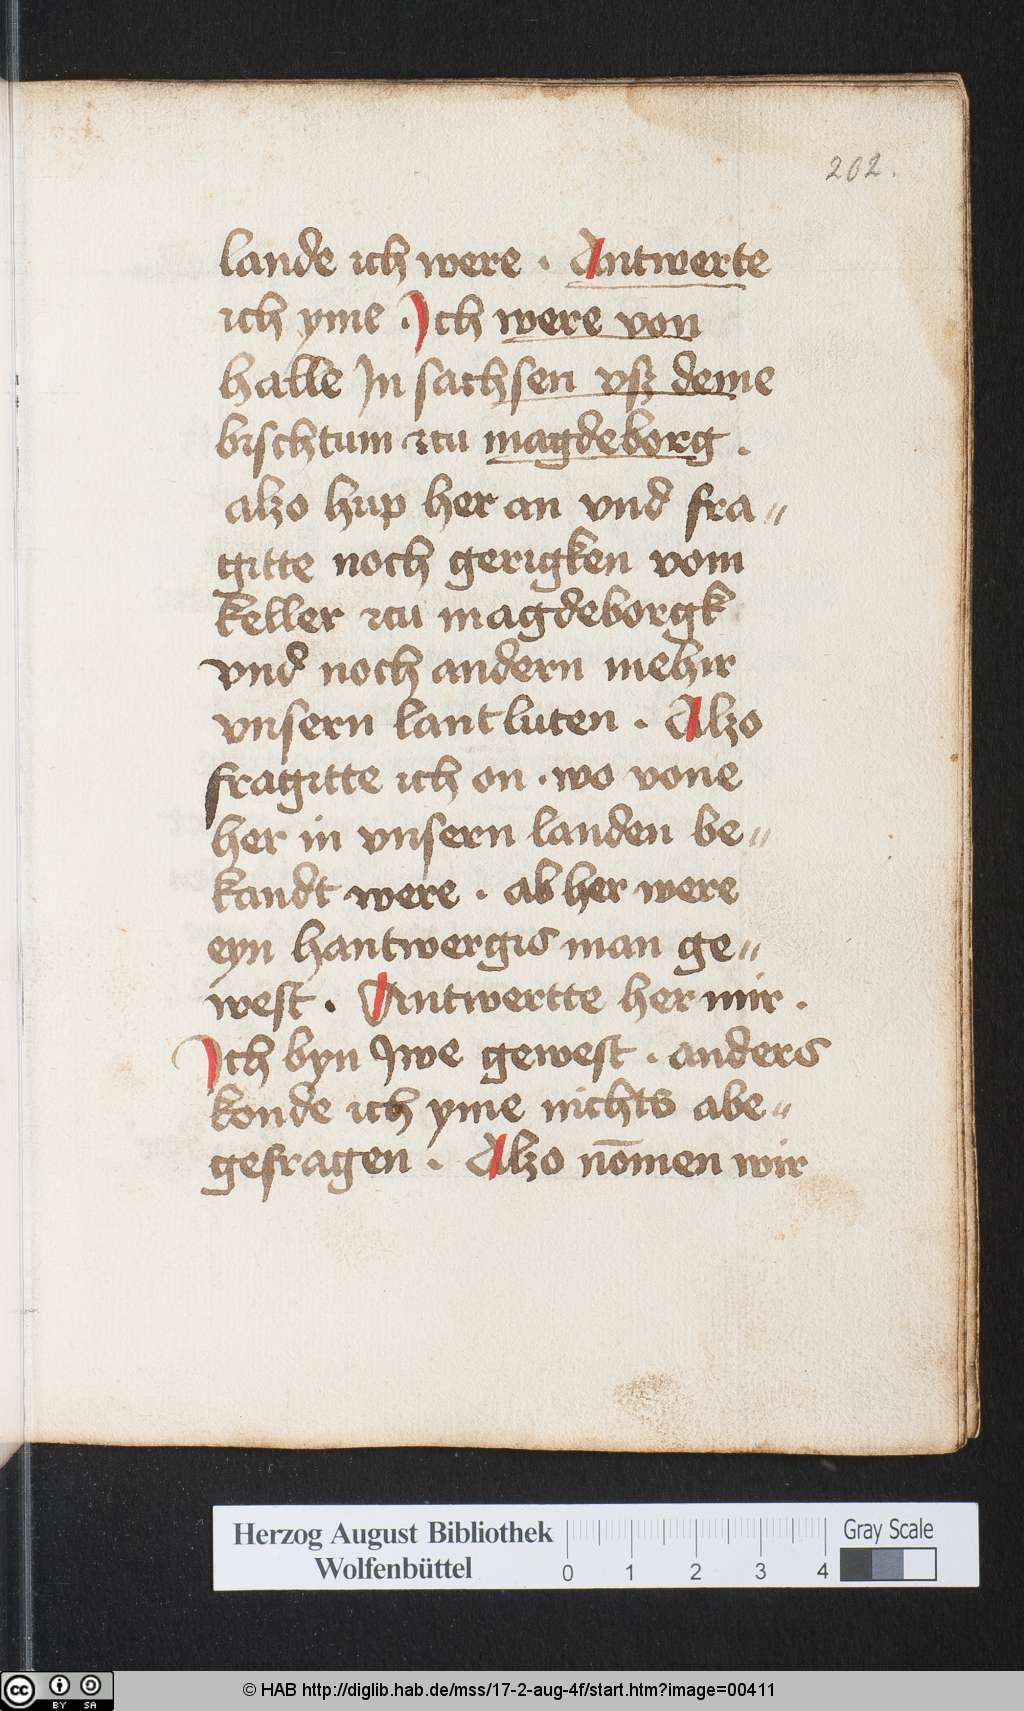 202.
lande ich were . Antwerte
ich yme . Ich were von
halle In sachsen vsz deme
bischtum zcu magdeborg .
alzo hup her an vnd fra〃
gitte noch gerigken vom
keller zcu magdeborgk
vnd noch andern mehir
vnsern lantluten . Alzo
fragitte ich on . wo vone
her in vnsern landen be〃
kandt were . ab her were
eyn hantwergis man ge〃
west . Antwertte her mir .
Ich byn Iwe gewest . anders
konde ich yme nichts abe〃
gefragen . Alzo nōmen wir
Herzog August Bibliothek
Wolfenbüttel
0 1 2 3 4
Gray Scale
cc BY SA
© HAB http://diglib.hab.de/mss/17-2-aug-4f/start.htm?image=00411